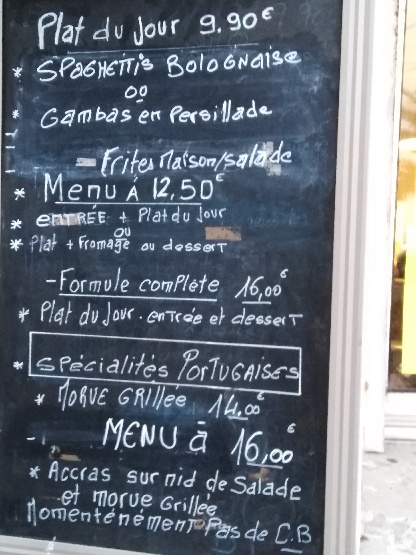 Plat du Jour 9.90€
* SPAGHETTIS BOLOGNaise
ou
* Gambas en Persillade
- Frites Maison/salade
* Menu À 12,50€
* entRÉE + Plat du Jour
ou
* Plat + Fromage ou desserT
- Formule complète 16,00€
* Plat du Jour. entrée et desserT
* Spécialités PorTUGAISES
* MORUE GRillée 14.00€
- MENU à 16,00€
* Accras sur nid de Salade
et morue Grillée
Momenténément Pas de C.B